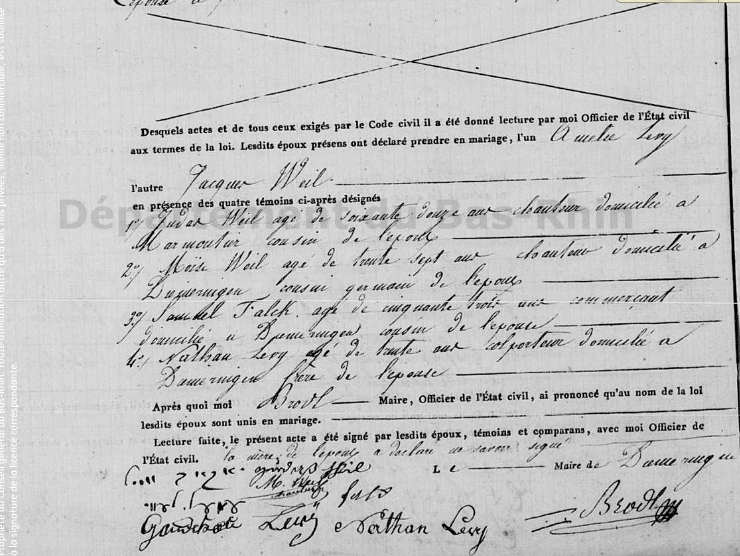 Desquels actes et de tous ceux exigés par le Code civil il a été donné lecture par moi Officier de l'État civil
aux termes de la loi. Lesdits époux présens ont déclaré prendre en mariage, l'un Amélie Levy
l'autre Jacques Weil
en présence des quatre témoins ci-après désignés
Département du Bas-Rhin
1° Judas Weil agé de soixante douze ans chanteur domicilié a
Marmoutier cousin de l'epoux
2° Moïse Weil agé de trente sept ans chanteur domicilié a
cousin germain de l'epoux
3° Samuel Falck agé de cinquante trois ans commerçant
domicilié a Domeringen cousin de l'epouse
4° Nathan Levy agé de trente ans colporteur domicilié a
Domeringen frère de l'epouse
Après quoi moi Brodt Maire, Officier de l'État civil, ai prononcé qu'au nom de la loi
lesdits époux sont unis en mariage.
Lecture faite, le présent acte a été signé par lesdits époux, témoins et comparans, avec moi Officier de
l'État civil. la mère de l'epoux a declaré ne savoir signé
Le Maire de Domeringen
M. Weil
Levy Nathan Levy Brodt